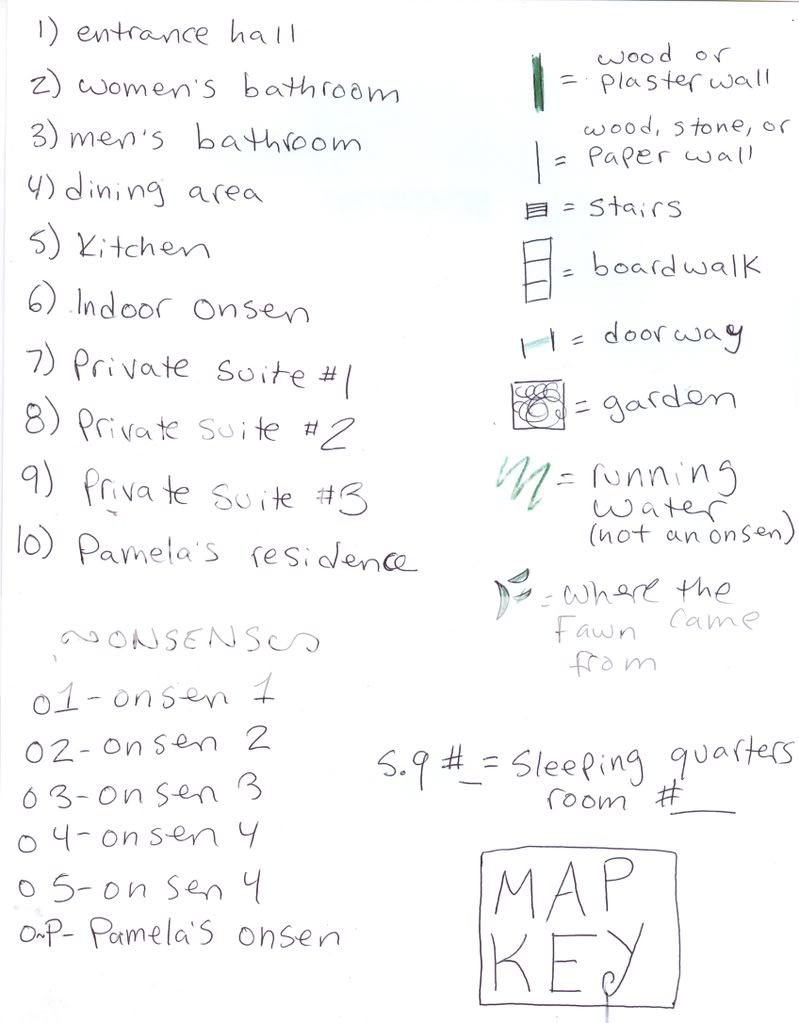 1) entrance hall
2) women's bathroom
3) men's bathroom
4) dining area
5) Kitchen
6) Indoor onsen
7) Private suite #1
8) Private suite #2
9) Private suite #3
10) Pamela's residence
~ONSENS~
01-onsen 1
02-onsen 2
03-onsen 3
04-onsen 4
05-onsen 4
O~P- Pamela's onsen
= wood or
plaster wall
= wood, stone, or
paper wall
= stairs
= boardwalk
= doorway
= garden
= running
water
(not an onsen)
= where the
Fawn came
from
S.q #_ = Sleeping quarters
room #___
MAP
KEY